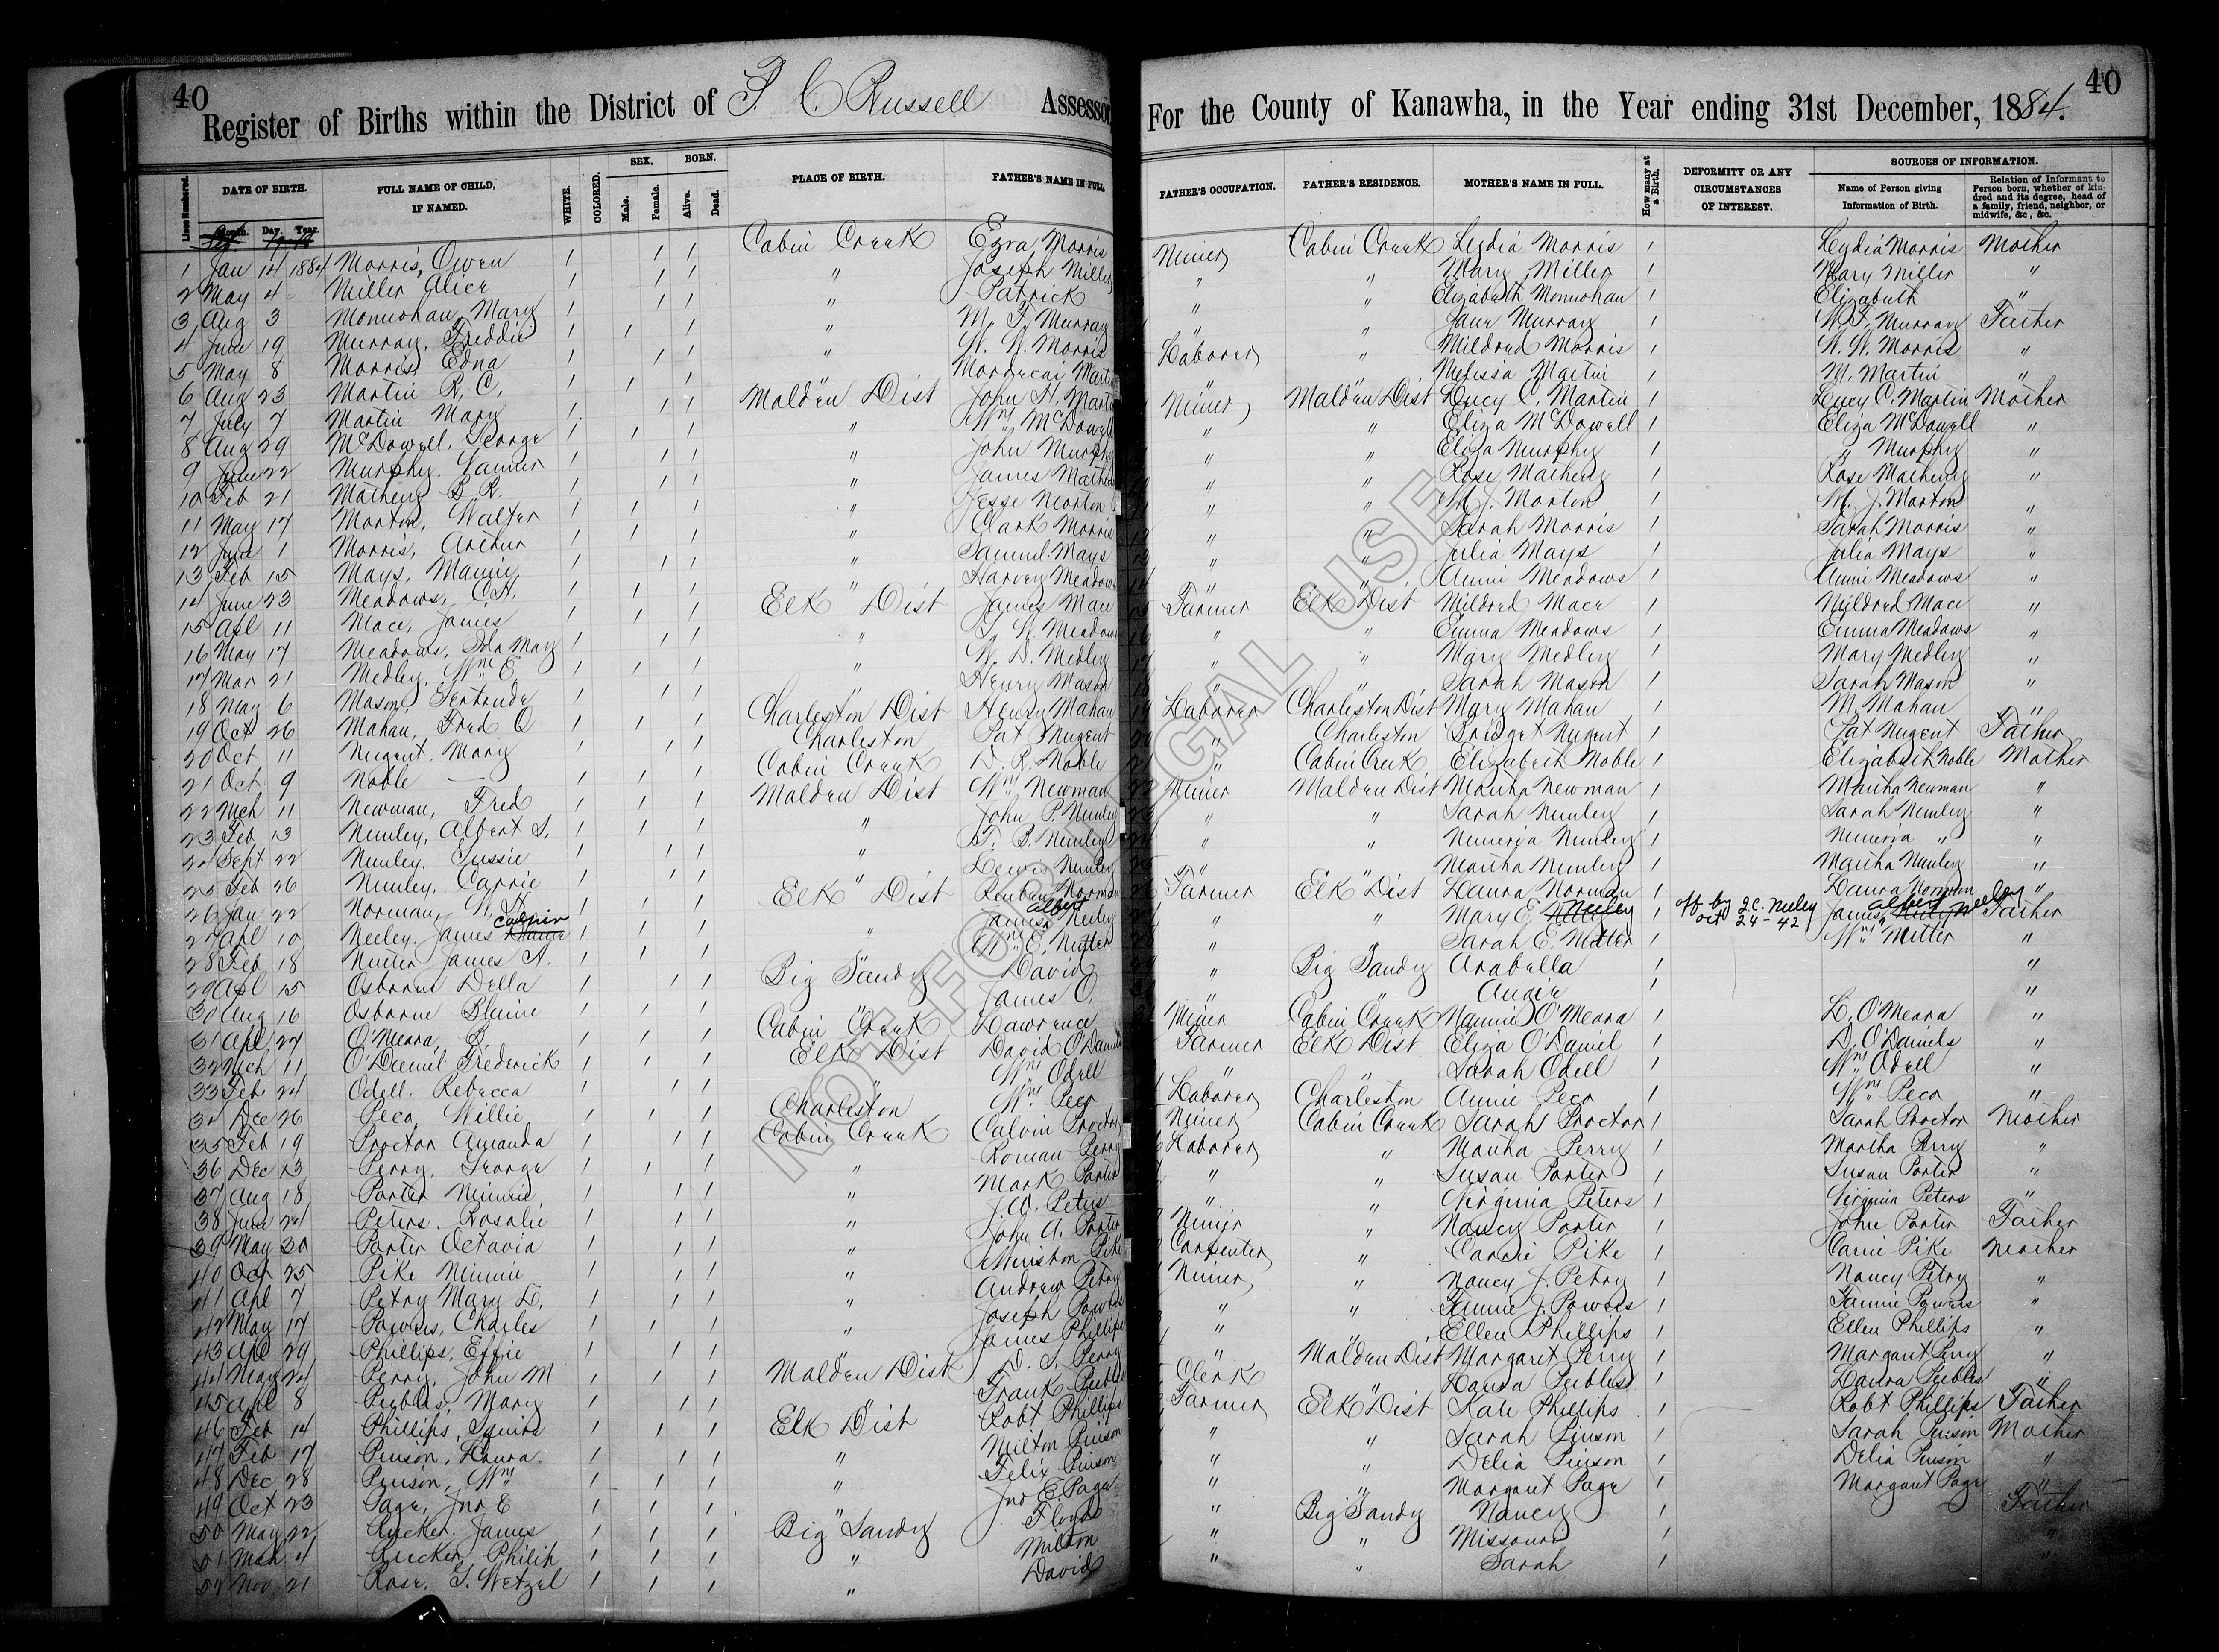 40
Register of Births within the District of T. C. Russell Assessor
For the County of Kanawha, in the Year ending 31st December, 1884.
40
Lines Numbered. DATE OF BIRTH. Month. Day. Year. FULL NAME OF CHILD, IF NAMED. WHITE. COLORED. SEX. Male. Female. BORN. Alive. Dead. PLACE OF BIRTH. FATHER'S NAME IN FULL.
FATHER'S OCCUPATION. FATHER'S RESIDENCE. MOTHER'S NAME IN FULL. How many at a Birth. DEFORMITY OR ANY CIRCUMSTANCES OF INTEREST. SOURCES OF INFORMATION. Name of Person giving Information of Birth. Relation of Informant to Person born, whether of kindred and its degree, head of a family, friend, neighbor, or midwife, &c., &c.
1 Jan 14 1884 Morris, Owen 1 1 1 Cabin Creek Ezra Morris Miner Cabin Creek Lydia Morris 1 Lydia Morris Mother
2 May 4 Miller Alice 1 1 1 " Joseph Miller " " Mary Miller 1 Mary Miller "
3 Aug 3 Monnohan, Mary 1 1 1 " Patrick " " Elizabeth Monnohan 1 Elizabeth "
4 June 19 Murray, Freddie 1 1 1 " M. F. Murray " " Jane Murray 1 Murray Father
5 May 8 Morris, Edna 1 1 1 " W. W. Morris Laborer " Mildred Morris 1 W. W. Morris "
6 Aug 23 Martin R. C. 1 1 1 " Mordecai Martin " " Melissa Martin 1 M. Martin "
7 July 7 Martin Mary 1 1 1 Malden Dist John H. Martin Miner Malden Dist Lucy C. Martin 1 Lucy C. Martin Mother
8 Aug 29 McDowell, George 1 1 1 " Wm McDowell " " Eliza McDowell 1 Eliza McDowell "
9 June 22 Murphy, 1 1 1 " John Murphy " " Eliza Murphy 1 " Murphy "
10 Feb 21 Matheny B. R. 1 1 1 " James Matheny " " Rose Matheny 1 Rose Matheny "
11 May 17 Morton, Walter 1 1 1 " Jesse Morton " " M. J. Morton 1 M. J. Morton "
12 June 1 Morris, Arthur 1 1 1 " Clark Morris " " Sarah Morris 1 Sarah Morris "
13 Feb 15 Mays, Mamie 1 1 1 " Samuel Mays " " Julia Mays 1 Julia Mays "
14 June 23 Meadows, 1 1 1 " Harvey Meadows " " Annie Meadows 1 Annie Meadows "
15 Apl 11 Mace, James 1 1 1 Elk Dist James Mace Farmer Elk Dist Mildred Mace 1 Mildred Mace "
16 May 17 Meadows, Ida May 1 1 1 " Meadows " " Emma Meadows 1 Emma Meadows "
17 Mar 21 Medley, Wm E. 1 1 1 " W. D. Medley " " Mary Medley 1 Mary Medley "
18 May 6 Mason, Gertrude 1 1 1 " Henry Mason " " Sarah Mason 1 Sarah Mason "
19 Oct 26 Mahan, Fred O 1 1 1 Charleston Dist Henry Mahan Laborer Charleston Dist Mary Mahan 1 M. Mahan "
20 Oct 11 Nugent, Mary 1 1 1 Charleston Pat Nugent " Charleston Bridget Nugent 1 Pat Nugent Father
21 Oct 9 Noble — 1 1 1 Cabin Creek D. R. Noble " Cabin Creek Elizabeth Noble 1 Elizabeth Noble Mother
22 Mch 11 Newman, Fred 1 1 1 Malden Dist Wm Newman Miner Malden Dist Martha Newman 1 Martha Newman "
23 Feb 13 Nunley, Albert S. 1 1 1 " John P. Nunley " " Sarah Nunley 1 Sarah Nunley "
24 Sept 22 Nunley, 1 1 1 " T. B. Nunley " " Nunley 1 " "
25 Feb 26 Nunley, Carrie 1 1 1 " Lewis Nunley " " Martha Nunley 1 Martha Nunley "
26 Jan 22 Norman, 1 1 1 Elk Dist Reuben Norman Farmer Elk Dist Laura Norman 1 Laura Norman "
27 Apl 10 Neeley, James Calvin 1 1 1 " James Albert Neeley " " Mary E. Neeley 1 aff by J.C. Neeley Oct 24-42 James Albert Neeley Father
28 Feb 18 James A. 1 1 1 " Wm E. " " Sarah E. 1 Wm "
29 Apl 15 Osborne Della 1 1 1 Big Sandy David " Big Sandy Arabella 1 "
30 Aug 16 Osborne Blaine 1 1 1 " James O. " " Angie 1 "
31 Apl 27 O'Meara, B. 1 1 1 Cabin Creek Lawrence Miner Cabin Creek Nannie O'Meara 1 L. O'Meara "
32 Mch 11 O'Daniel Frederick 1 1 1 Elk Dist David O'Daniel Farmer Elk Dist Eliza O'Daniel 1 D. O'Daniels "
33 Feb 24 Odell, Rebecca 1 1 1 " Wm Odell " " Sarah Odell 1 Wm Odell "
34 Dec 26 Peco, Willie 1 1 1 Charleston Wm Peco Laborer Charleston Annie Peco 1 Wm Peco "
35 Feb 19 Proctor Amanda 1 1 1 Cabin Creek Calvin Proctor Miner Cabin Creek Sarah Proctor 1 Sarah Proctor Mother
36 Dec 13 Perry, George 1 1 1 " Roman Perry Laborer " Martha Perry 1 Martha Perry "
37 Aug 18 Porter Minnie 1 1 1 " Mark Porter " " Susan Porter 1 Susan Porter "
38 June 24 Peters, Rosalie 1 1 1 " Peters " " Virginia Peters 1 Virginia Peters "
39 May 30 Porter Octavia 1 1 1 " John A. Porter Miner " Nancy Porter 1 John Porter Father
40 Oct 25 Pike Minnie 1 1 1 " Winston Pike Carpenter " Carrie Pike 1 Carrie Pike Mother
41 Apl 7 Petry Mary L. 1 1 1 " Andrew Petry Miner " Nancy J. Petry 1 Nancy Petry "
42 May 17 Powers, Charles 1 1 1 " Joseph Powers " " Fannie J. Powers 1 Fannie Powers "
43 Apl 29 Phillips, Effie 1 1 1 " James Phillips " " Ellen Phillips 1 Ellen Phillips "
44 May 24 Perry, John M 1 1 1 Malden Dist D. S. Perry " Malden Dist Margaret Perry 1 Margaret Perry "
45 Apl 8 Peebles, Mary 1 1 1 " Frank Peebles Clerk " Laura Peebles 1 Laura Peebles "
46 Feb 14 Phillips, Squire 1 1 1 Elk Dist Robt Phillips Farmer Elk Dist Kate Phillips 1 Robt Phillips Father
47 Feb 17 Pinson, Laura 1 1 1 " Milton Pinson " " Sarah Pinson 1 Sarah Pinson Mother
48 Dec 28 Pinson, Wm 1 1 1 " Felix Pinson " " Delia Pinson 1 Delia Pinson "
49 Oct 23 Page, Jno E 1 1 1 " Jno E. Page " " Margaret Page 1 Margaret Page "
50 May 22 Rucker, James 1 1 1 Big Sandy Floyd " Big Sandy Nancy 1 Father
51 Mch 4 Rucker, Philip 1 1 1 " Milton " " Missouri 1 "
52 Nov 21 Rose, G. Wetzel 1 1 1 " David " " Sarah 1 "
NOT FOR LEGAL USE